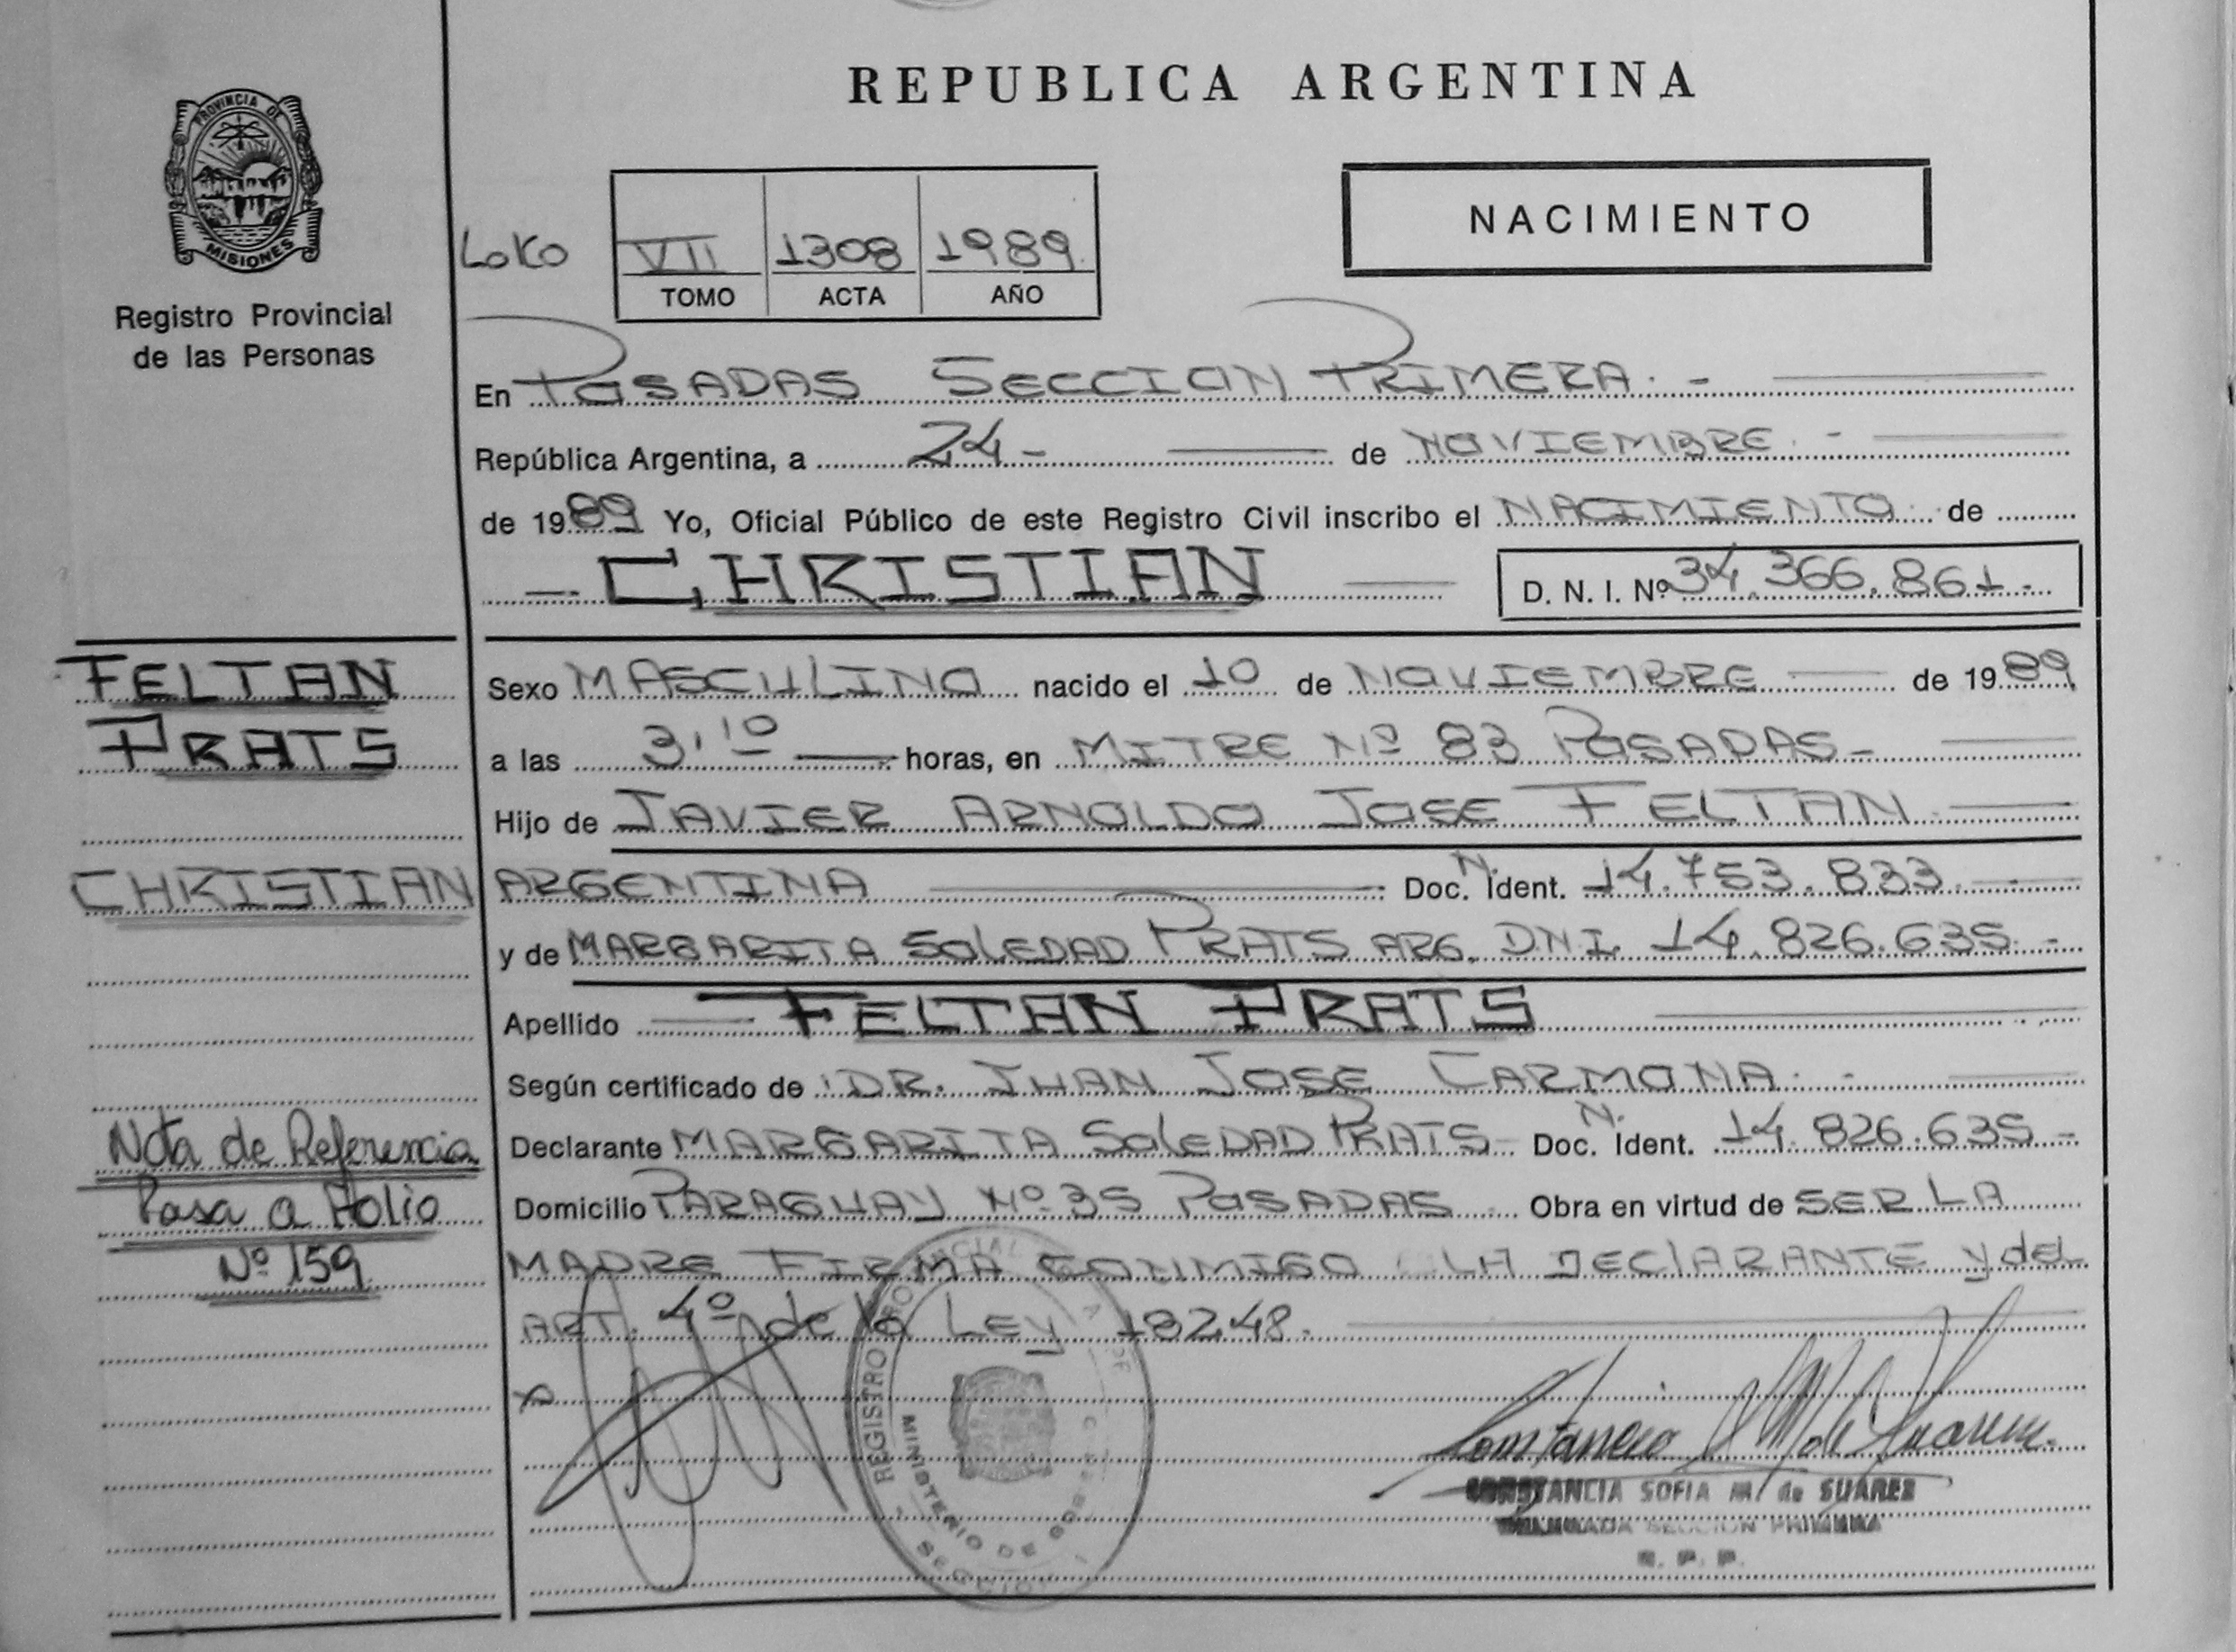 REPUBLICA ARGENTINA
PROVINCIA DE
MISIONES
Registro Provincial
de las Personas
NACIMIENTO
Loko
VII 1308 1989
TOMO ACTA AÑO
En POSADAS SECCION PRIMERA.-
República Argentina, a 24- de NOVIEMBRE.-
de 1989 Yo, Oficial Público de este Registro Civil inscribo el NACIMIENTO de
CHRISTIAN D. N. I. Nº 34.366.861.-
FELTAN
PRATS
CHRISTIAN
Nota de Referencia
Pasa a Folio
Nº 159
Sexo MASCULINO nacido el 10 de NOVIEMBRE de 1989
a las 3,10 horas, en MITRE Nº 83 POSADAS-
Hijo de JAVIER ARNOLDO JOSE FELTAN
ARGENTINA Doc. N. Ident. 14.753.833
y de MARGARITA SOLEDAD PRATS ARG. D.N.I. 14.826.635.-
Apellido FELTAN PRATS
Según certificado de DR. JUAN JOSE CARMONA.-
Declarante MARGARITA SOLEDAD PRATS- Doc. N. Ident. 14.826.635-
Domicilio PARAGUAY Nº 35 POSADAS Obra en virtud de SER LA
MADRE FIRMA CONMIGO LA DECLARANTE y del
ART. 4º de la Ley 18248.
REGISTRO PROVINCIAL DE
MINISTERIO DE
CONSTANCIA SOFIA M. de SUAREZ
SECCION PRIMERA
R. P. P.